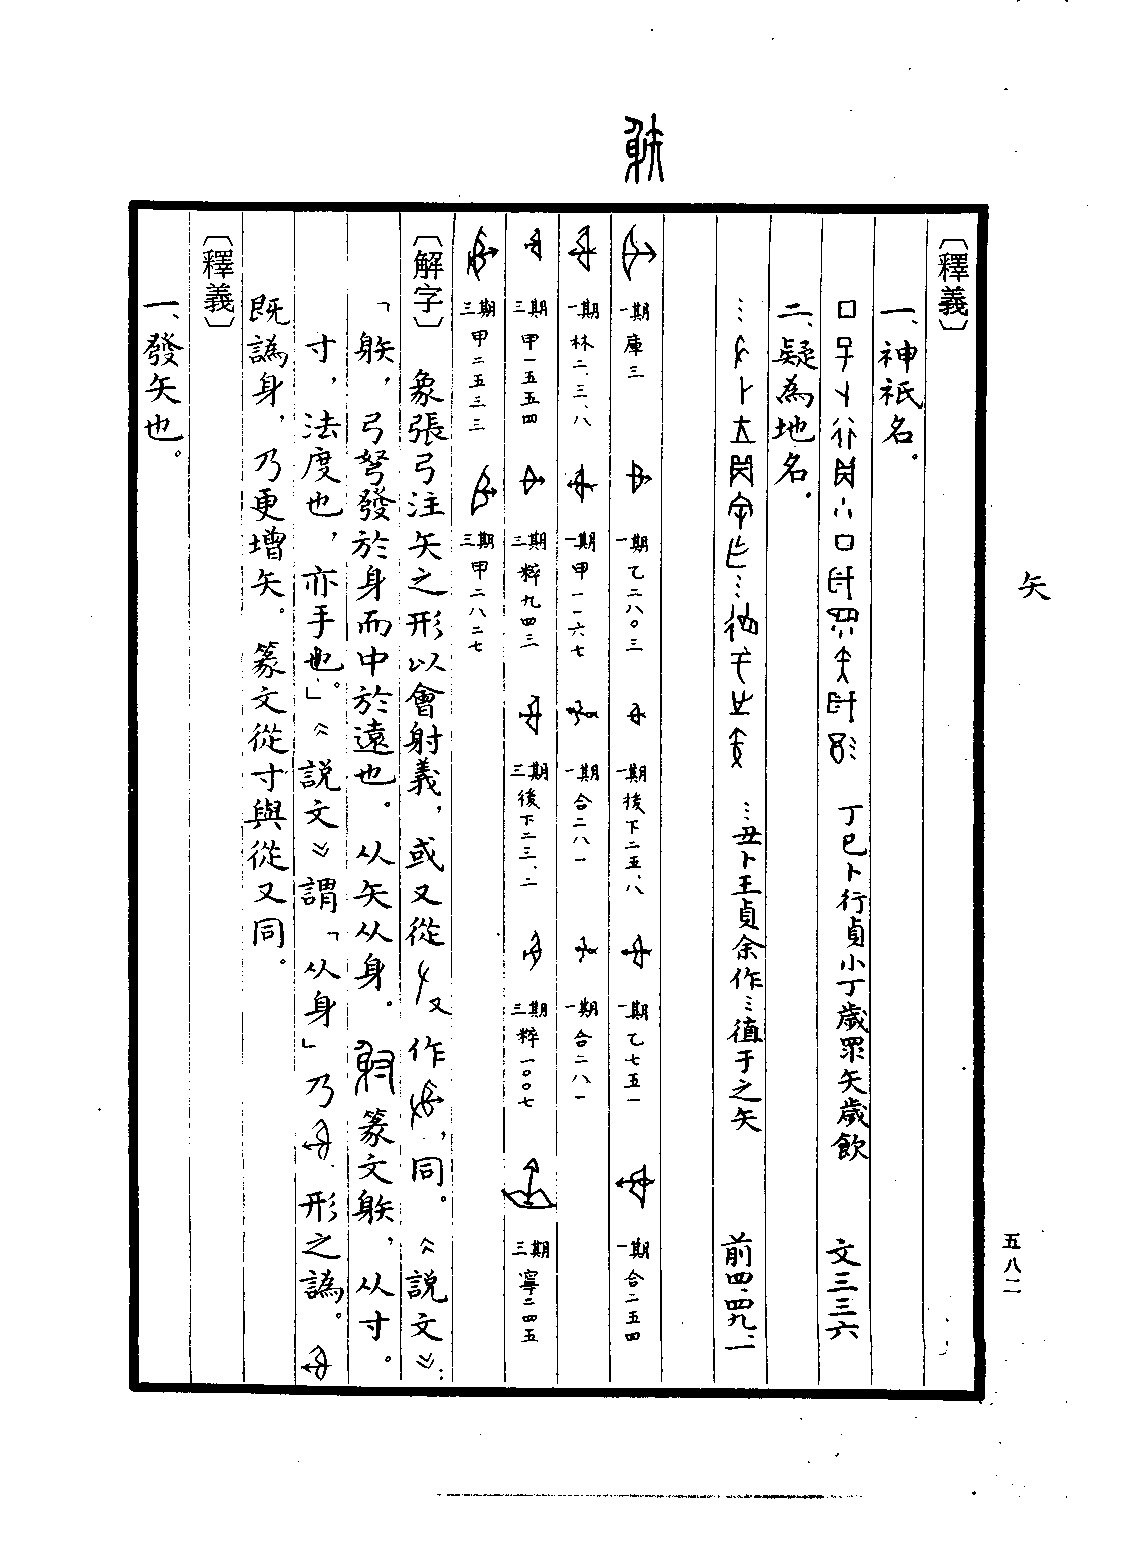 矢
五八二
〔釋義〕
一、神祇名。
丁巳卜行貞小丁歲眔矢歲飲 文三三六
二、疑為地名。
…丑卜王貞余作…值于之矢 前四.四九、一
躲
一期庫三 一期乙二八〇三 一期後下二五、八 一期乙七五一 一期合二五四
一期林二、三、八 一期甲一一六七 一期合二八一 一期合二八一
三期甲一五五四 三期粹九四三 三期後下二三、二 三期粹一〇〇七 三期寧二四五
三期甲二五三三 三期甲二八二七
〔解字〕 象張弓注矢之形以會射義，或又從又作，同。《說文》：
「躲，弓弩發於身而中於遠也。从矢从身。篆文躲，从寸。
寸，法度也，亦手也。」《說文》謂「从身」乃形之譌。
既譌身，乃更增矢。篆文從寸與從又同。
〔釋義〕
一、發矢也。